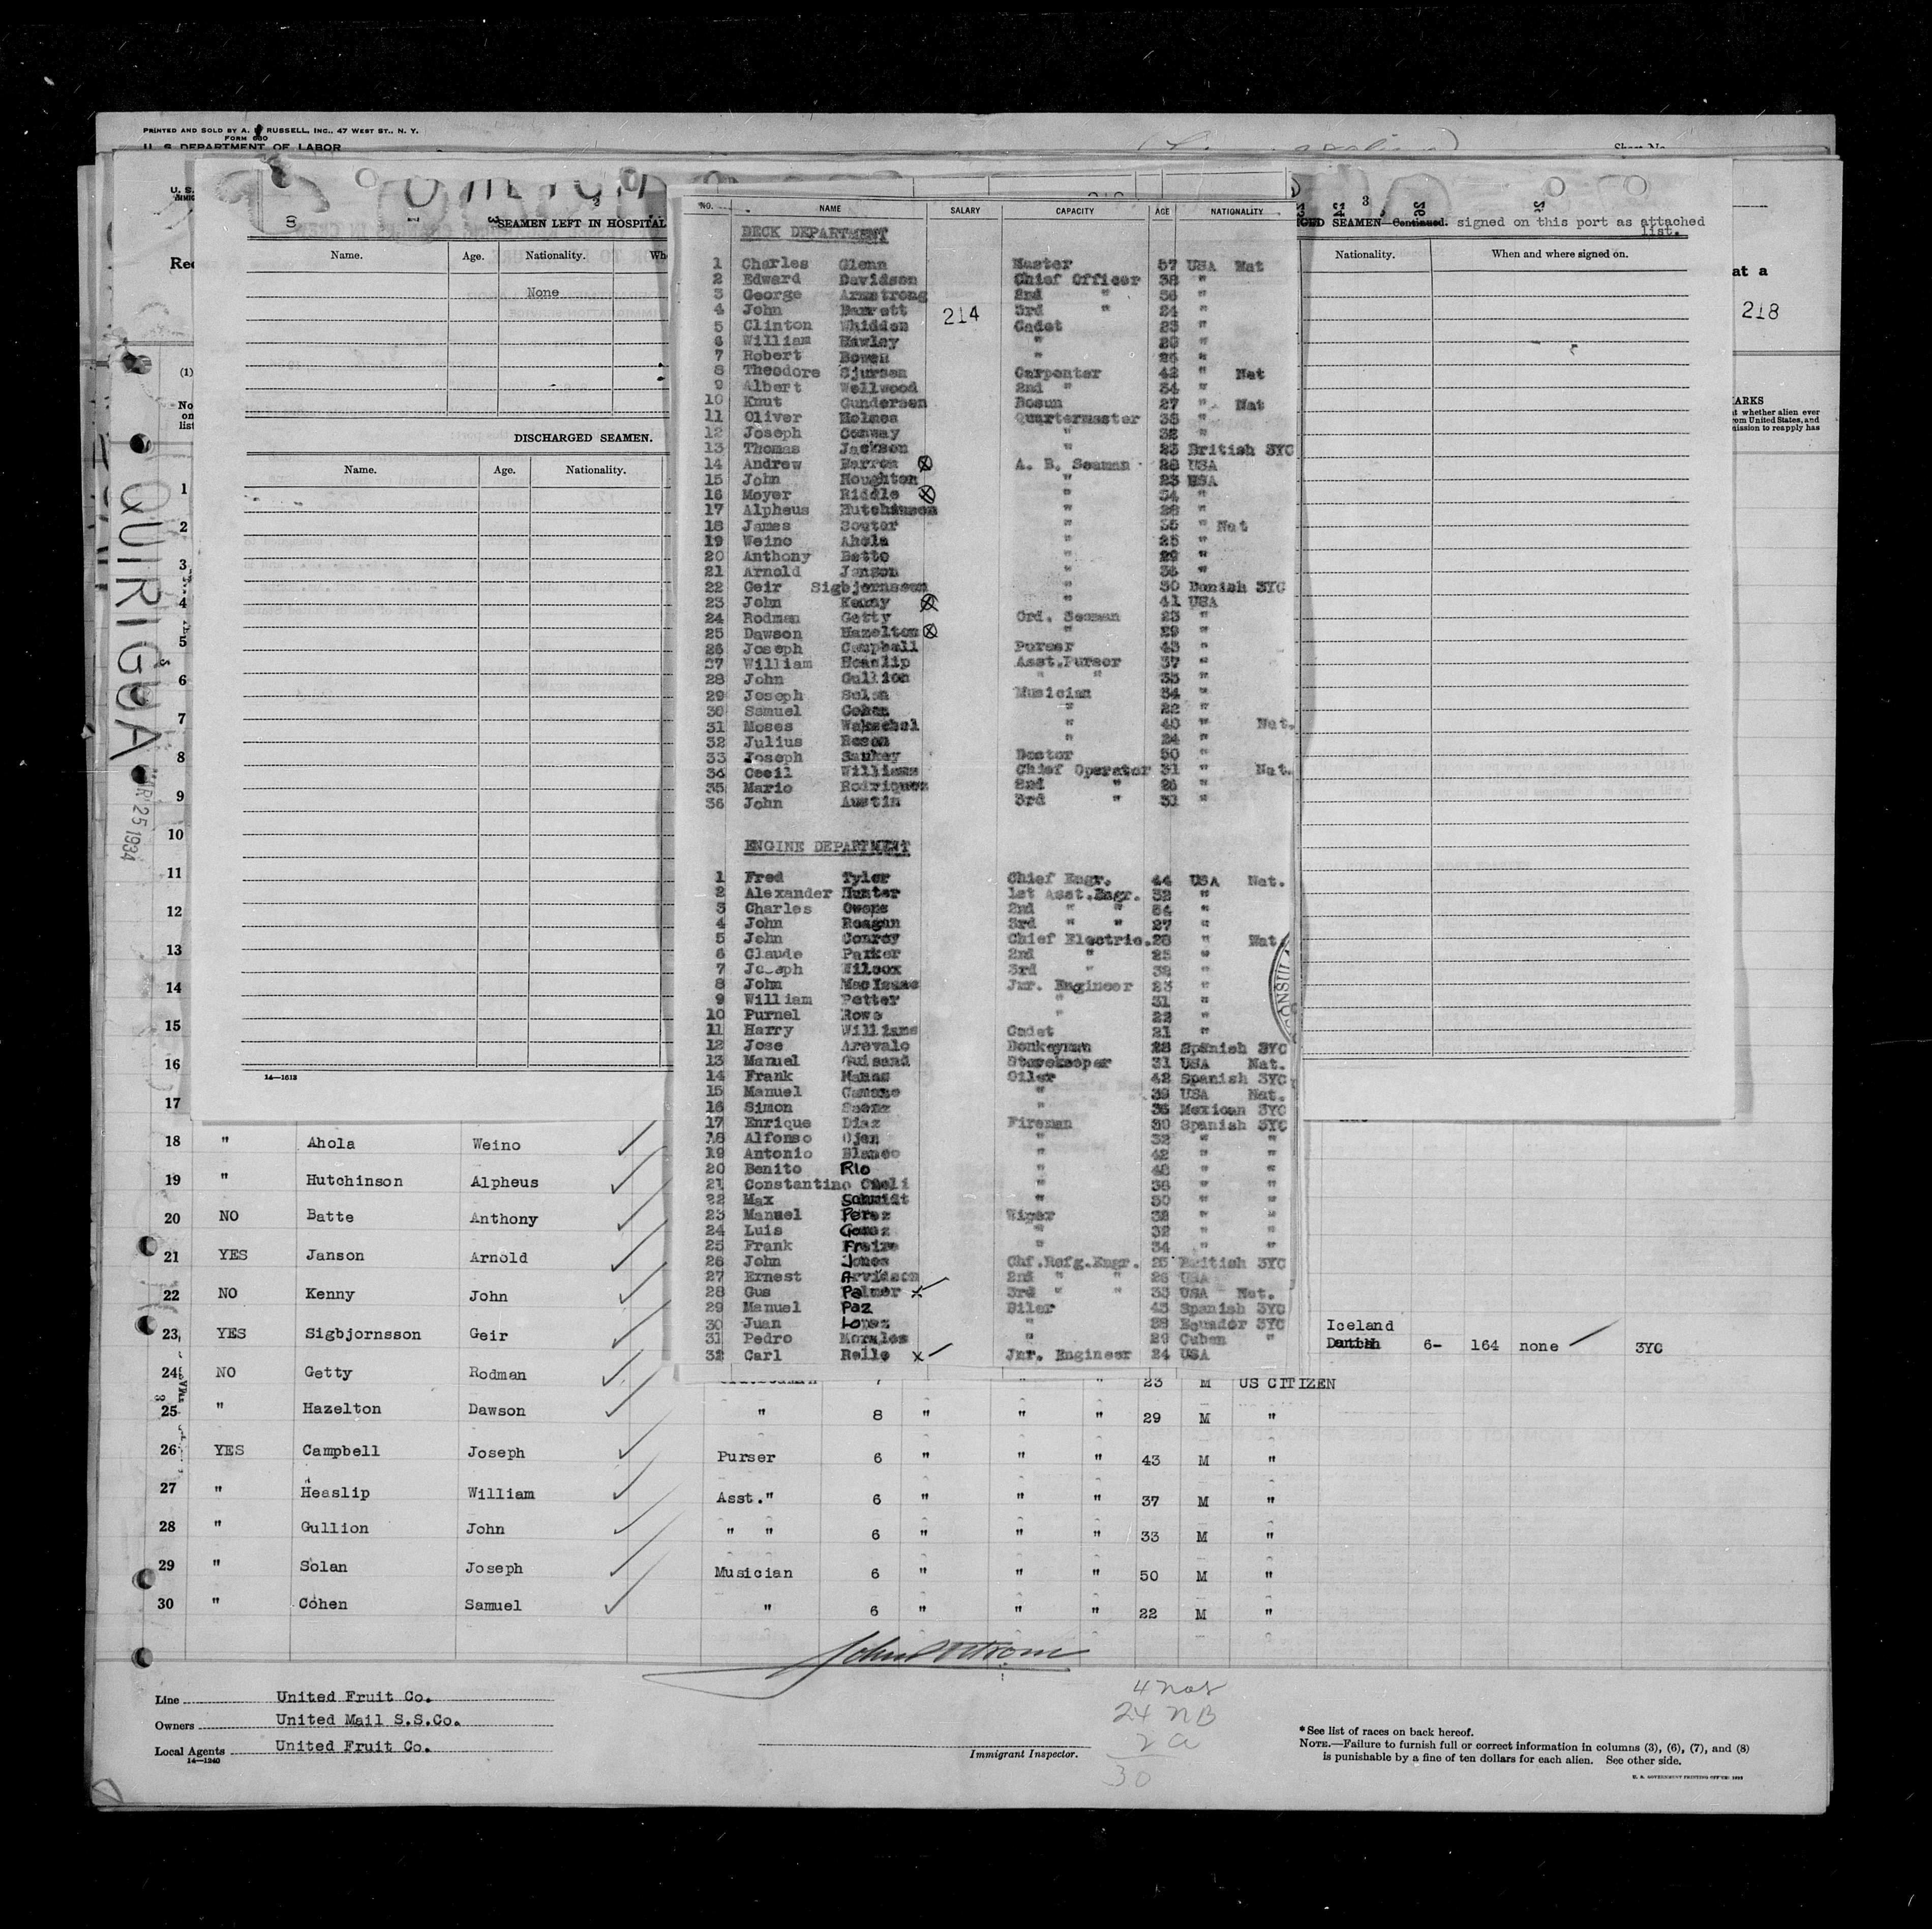 PRINTED AND SOLD BY A. RUSSELL, INC., 47 WEST ST., N. Y.
U. S. DEPARTMENT OF LABOR
QUIRIGUA
25 1934
SEAMEN LEFT IN HOSPITAL
Name. Age. Nationality.
None
DISCHARGED SEAMEN.
Name. Age. Nationality.
SEAMEN—Continued. signed on this port as attached
list.
Nationality. When and where signed on.
at a
218
14—1613
NO. NAME SALARY CAPACITY AGE NATIONALITY
DECK DEPARTMENT
214
1 Charles Glenn Master 57 USA Nat
2 Edward Davidson Chief Officer 38 "
3 George Armstrong 2nd " 36 "
4 John Barrett 3rd " 24 "
5 Clinton Whidden Cadet 23 "
6 William Hawley " "
7 Robert Bowen " "
8 Theodore Sjursen Carpenter 42 " Nat
9 Albert Wellwood 2nd " 34 "
10 Knut Gundersen Bosun 27 " Nat
11 Oliver Holmes Quartermaster 38 "
12 Joseph Conway " 32 "
13 Thomas Jackson " 23 British 3YC
14 Andrew A. B. Seaman 28 USA
15 John Houghton " 23 USA
16 Meyer Riddle " 34 "
17 Alpheus Hutchinson " 28 "
18 James Souter " 35 " Nat
19 Weino Ahola " 25 "
20 Anthony Batte " 29 "
21 Arnold Janson " 36 "
22 Geir Sigbjornsson " 30 Danish 3YC
23 John Kenny " 41 USA
24 Rodman Getty Ord. Seaman 23 "
25 Dawson Hazelton " 29 "
26 Joseph Campbell Purser 43 "
27 William Heaslip Asst.Purser 37 "
28 John Gullion " " 33 "
29 Joseph Solan Musician "
30 Samuel Cohen " 22 "
31 Moses Wakschal " 40 " Nat.
32 Julius Rosen " 24 "
33 Joseph Sankey Doctor 50 "
34 Cecil Williams Chief Operator 31 " Nat.
35 Mario Rodriquez 2nd " "
36 John Austin 3rd " "
ENGINE DEPARTMENT
1 Fred Tyler Chief Engr. 44 USA Nat.
2 Alexander Hunter 1st Asst.Engr. 32 "
3 Charles Owens 2nd " " 34 "
4 John Reagan 3rd " " 27 "
5 John Conroy Chief Electric. 28 " Nat.
6 Claude Parker 2nd " 25 "
7 Joseph Wilcox 3rd " "
8 John MacIsaac Jnr. Engineer 23 "
9 William Petter " 31 "
10 Purnel Rowe " 22 "
11 Harry Williams Cadet 21 "
12 Jose Arevalo Donkeyman 28 Spanish 3YC
13 Manuel Storekeeper 31 USA Nat.
14 Frank Manas Oiler 42 Spanish 3YC
15 Manuel " 39 USA Nat.
16 Simon Saenz " 36 Mexican 3YC
17 Enrique Diaz Fireman 30 Spanish 3YC
18 Alfonso Ojen " 32 " "
19 Antonio Blanco " 42 " "
20 Benito Rio " " "
21 Constantino " " "
22 Max Schmidt " 30 " "
23 Manuel Perez Wiper 38 " "
24 Luis Gomez " 32 " "
25 Frank Freize " 34 " "
26 John Jones Chf.Refg.Engr. 25 British 3YC
27 Ernest Arvidson 2nd " " 26 USA
28 Gus Palmer 3rd " " 33 USA Nat.
29 Manuel Paz 43 Spanish 3YC
30 Juan Lopez " 28 Ecuador 3YC
31 Pedro Morales " 29 Cuban "
32 Carl Jnr. Engineer 24 USA
1
2
3
4
5
6
7
8
9
10
11
12
13
14
15
16
17
18 " Ahola Weino
19 " Hutchinson Alpheus
20 NO Batte Anthony
21 YES Janson Arnold
22 NO Kenny John
23 YES Sigbjornsson Geir Iceland 6- 164 none 3YC
24 NO Getty Rodman 23 M US CITIZEN
25 " Hazelton Dawson " 8 " " " 29 M "
26 YES Campbell Joseph Purser 6 " " " 43 M "
27 " Heaslip William Asst." 6 " " " 37 M "
28 " Gullion John " " 6 " " " 33 M "
29 " Solan Joseph Musician 6 " " " 50 M "
30 " Cohen Samuel " 6 " " " 22 M "
Line United Fruit Co.
Owners United Mail S.S.Co.
Local Agents United Fruit Co.
14—1240
Immigrant Inspector.
4 Nat
24 NB
2 a
30
*See list of races on back hereof.
NOTE.—Failure to furnish full or correct information in columns (3), (6), (7), and (8)
is punishable by a fine of ten dollars for each alien. See other side.